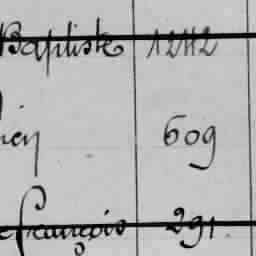 Baptiste 1242
609
françois 291